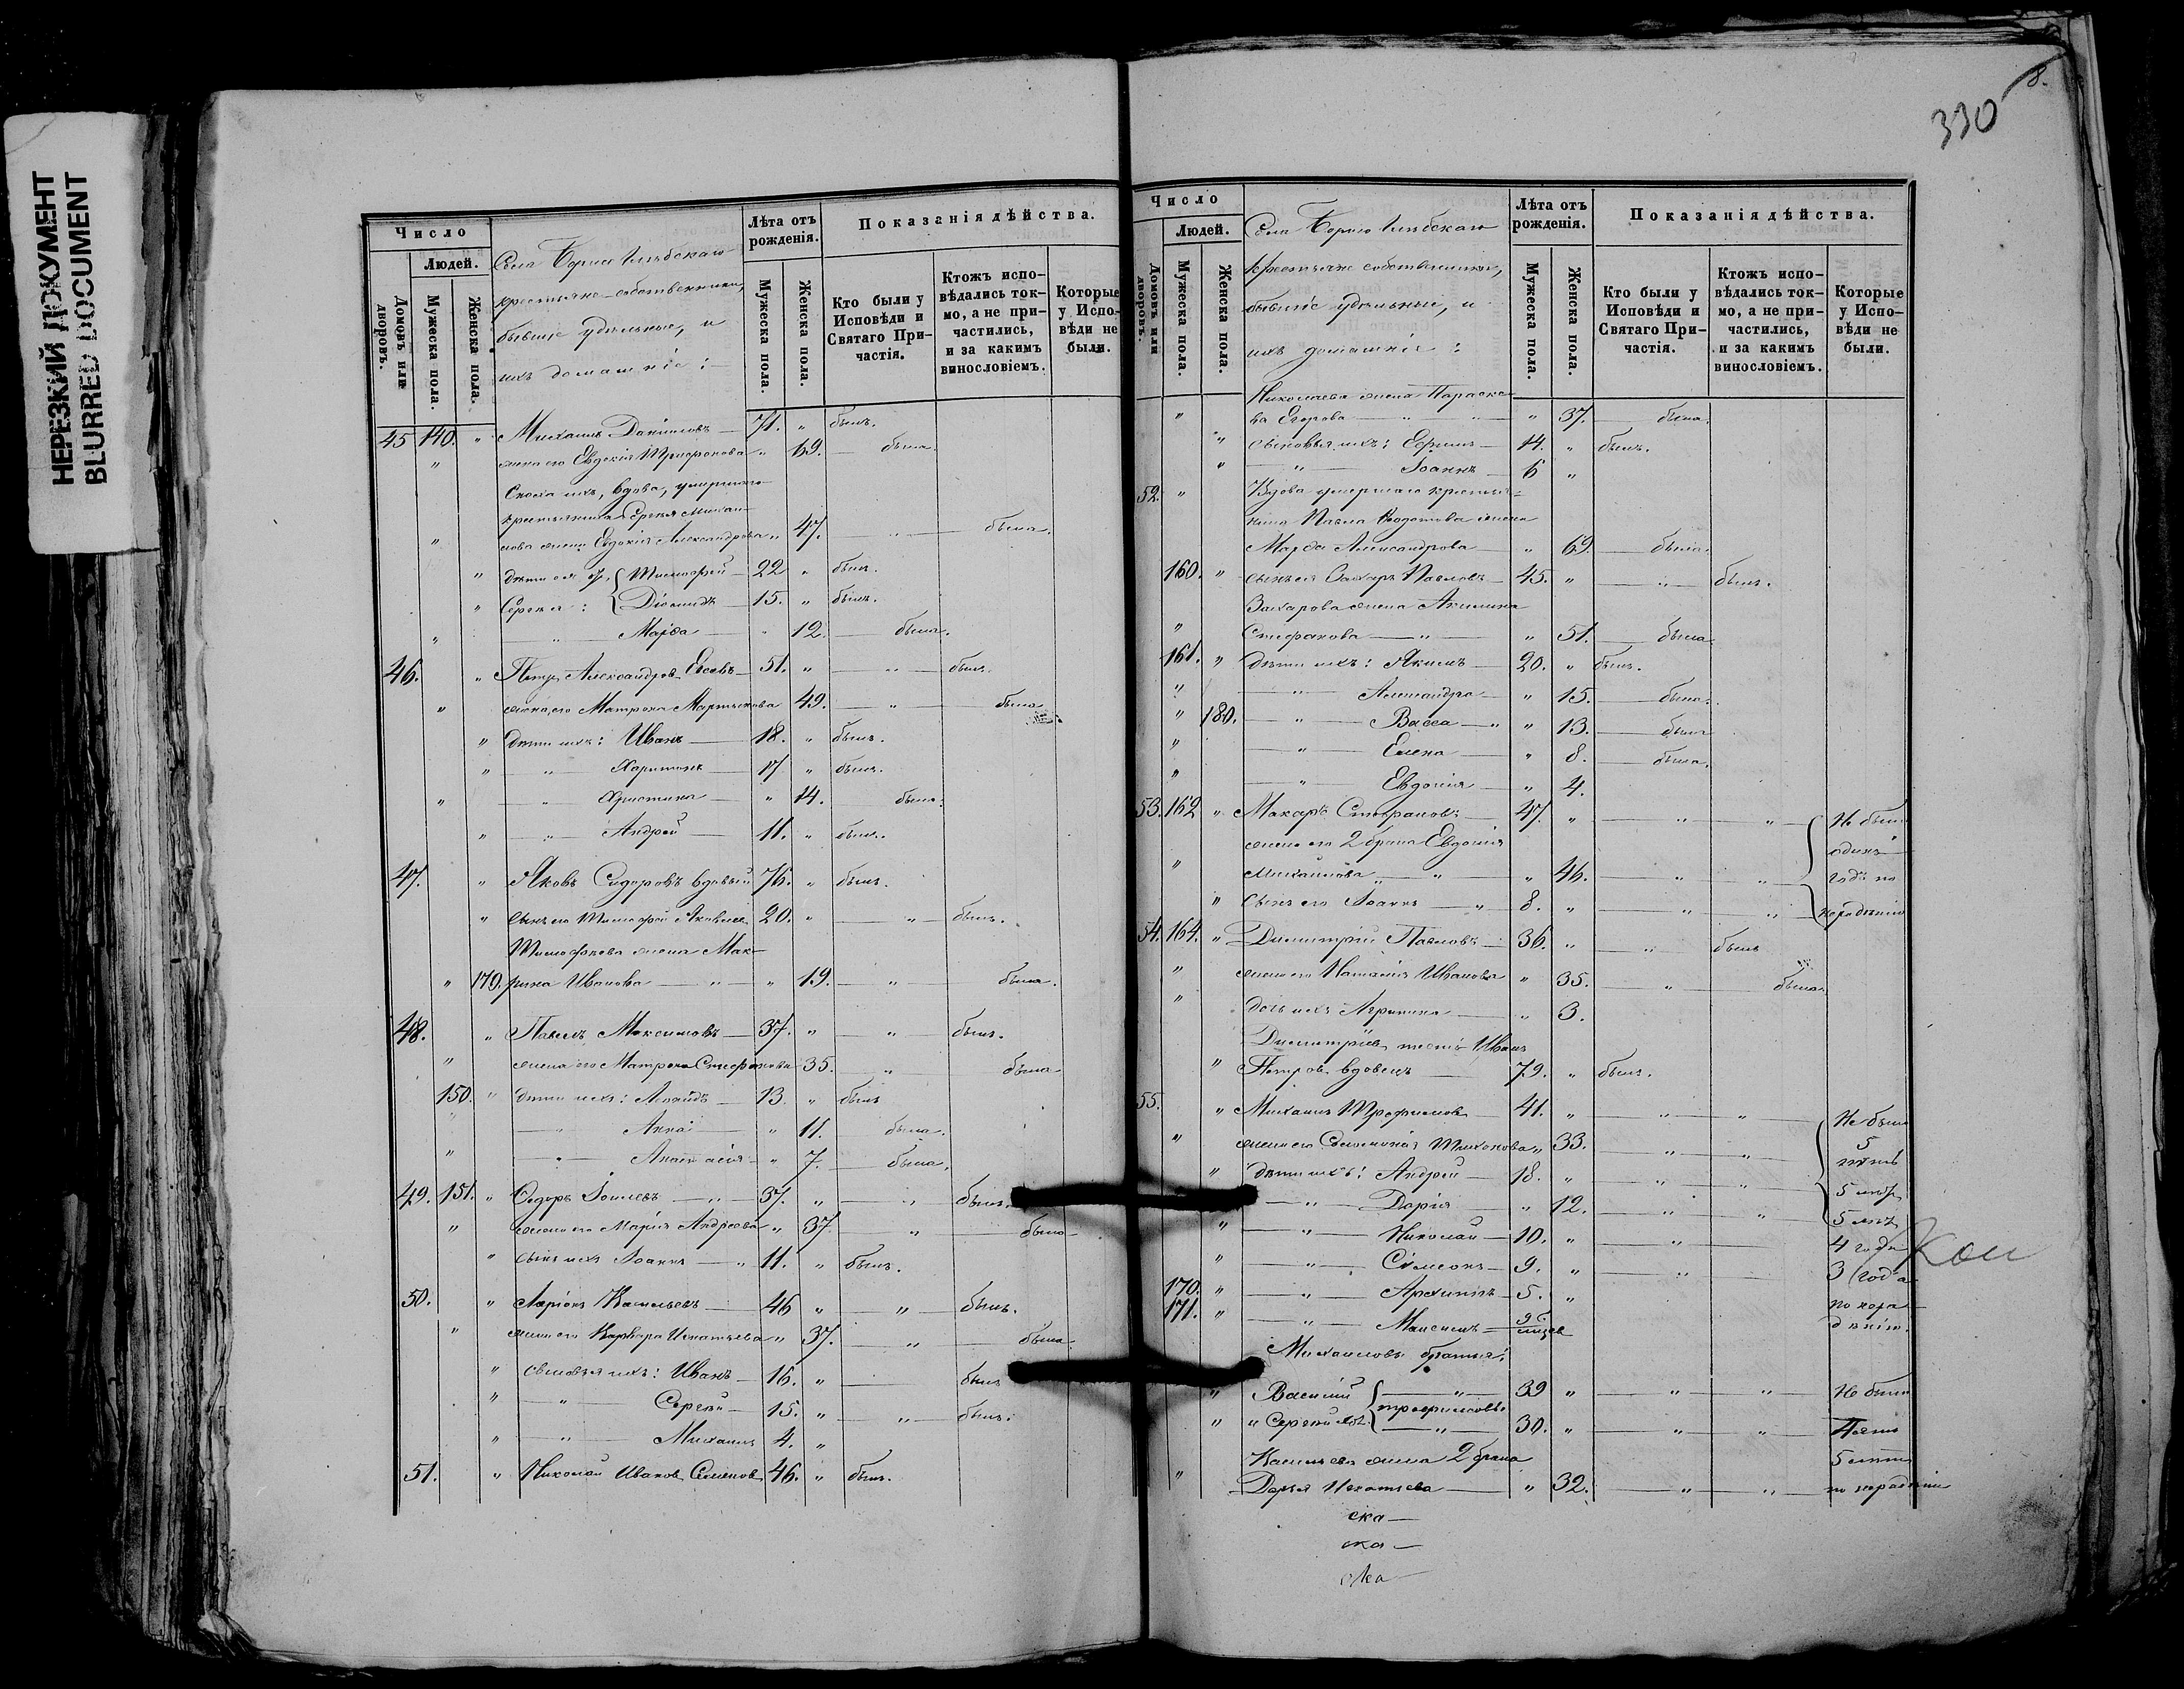 НЕРЕЗКИЙ ДОКУМЕНТ
BLURRED DOCUMENT
Число
Людей.
Домовъ или дворовъ.
Мужеска пола.
Женска пола.
Села Борисоглѣбскаго
крестьяне-собственники,
бывшіе удѣльные, и
ихъ домашніе:
Лѣта отъ рожденія.
Мужеска пола.
Женска пола.
Показанія дѣйства.
Кто были у Исповѣди и Святаго Причастія.
Ктожъ исповѣдались токмо, а не причастились, и за какимъ винословіемъ.
Которые у Исповѣди не были.
45 140. " Михаилъ Даніиловъ 71. " былъ.
" жена его Евдокія Трифонова " 69. была.
Сноха ихъ, вдова, умершаго
крестьянина Сергѣя Михаи-
лова жена Евдокія Александрова " 47. " была.
" дѣти ея Тимофей 22 " былъ.
" Сергѣя: Діомидъ 15. " былъ.
" " Марѳа " 12. была.
46. " Петръ Александровъ 51. " " былъ.
" жена его Матрона Мартынова 49. " была
" дѣти ихъ: Иванъ 18. " былъ.
" " Харитонъ 17 " былъ.
" " Христина " 14. была.
" " Андрей 11. " былъ.
47. " Яковъ Сидоровъ вдовый 76. " былъ.
" сынъ его Тимофей Яковлев 20. " " былъ.
Тимофеева жена Мак-
" 170. рина Иванова " " 19. " была.
48. " Павелъ Максимовъ 37. " " былъ.
" жена его Матрона Стефанова 35. " была
150. " дѣти ихъ: 13. " былъ
" " Анна " 11. была.
" " Анастасія " 7. была.
49. 151. " Ѳедоръ 37. " " былъ.
" жена его Марія Андреева " 37. " была
" сынъ ихъ Іоаннъ " 11. " былъ.
50. " Ларіонъ Васильевъ 46 " " былъ.
" жена его Варвара Игнатьева " 37. " была
" сыновья ихъ: Иванъ 16. " былъ
" " Сергѣй 15. " " былъ.
" " Михаилъ 4. "
51. " Николай Иванов Семенов 46. " былъ.
8.
330
Число
Людей.
Домовъ или дворовъ.
Мужеска пола.
Женска пола.
Села Борисоглѣбскаго
крестьяне собственники,
бывшіе удѣльные, и
ихъ домашніе:
Лѣта отъ рожденія.
Мужеска пола.
Женска пола.
Показанія дѣйства.
Кто были у Исповѣди и Святаго Причастія.
Ктожъ исповѣдались токмо, а не причастились, и за какимъ винословіемъ.
Которые у Исповѣди не были.
Николаева жена Параске-
" ва Егорова " " " 37. была.
" сыновья ихъ: Ефимъ 14. " былъ.
" " Іоаннъ 6 "
52. " Вдова умершаго крестья-
нина Павла жена
Марѳа Александрова " 69. была.
160. " сынъ ея Захаръ Павловъ 45. " " былъ.
Захарова жена Акилина
" Стефанова " " 51. была
161. " дѣти ихъ: Якимъ 20. " былъ.
" " Александра " 15. была.
" 180. " Васса " " 13. была
" " Елена " 8. была.
" " Евдокія " 4.
53. 162 " Макаръ Стефановъ 47. " " " Не были
жена его 2 брака Евдокія одинъ
" Михайлова " " " 46. " " годъ по
" сынъ его Іоаннъ " 8. " " " нерадѣнію
54. 164. " Димитрій Павловъ 36. " " былъ
" жена его Наталія Иванова " 35. " была.
" дочь ихъ Агриппина " 3.
Димитріев тесть Иванъ
" Петров вдовецъ 79. " былъ.
55. " Михаилъ Трофимовъ 41. " " " Не были
" жена его Соломонія Тихонова " 33. " " 5
" дѣти ихъ: Андрей 18. " " " лѣтъ
" Дарія " 12. " " 5 лѣтъ
5 лѣтъ
" " Николай 10. " " 4 года
" " Симеонъ 9. " " 3 года
170. " " Архиппъ 5. " по нера-
171. " " Максимъ 9 мцев дѣнію.
Кои
Михаиловы братья:
" Василій " 39 " " " Не были
Трофимовы
" и Сергѣй " 30. " " " Пять
Васильева жена 2 брака 5 лѣтъ
" Дарья Игнатьева " 32. " " по нерадѣнію
ска
ока